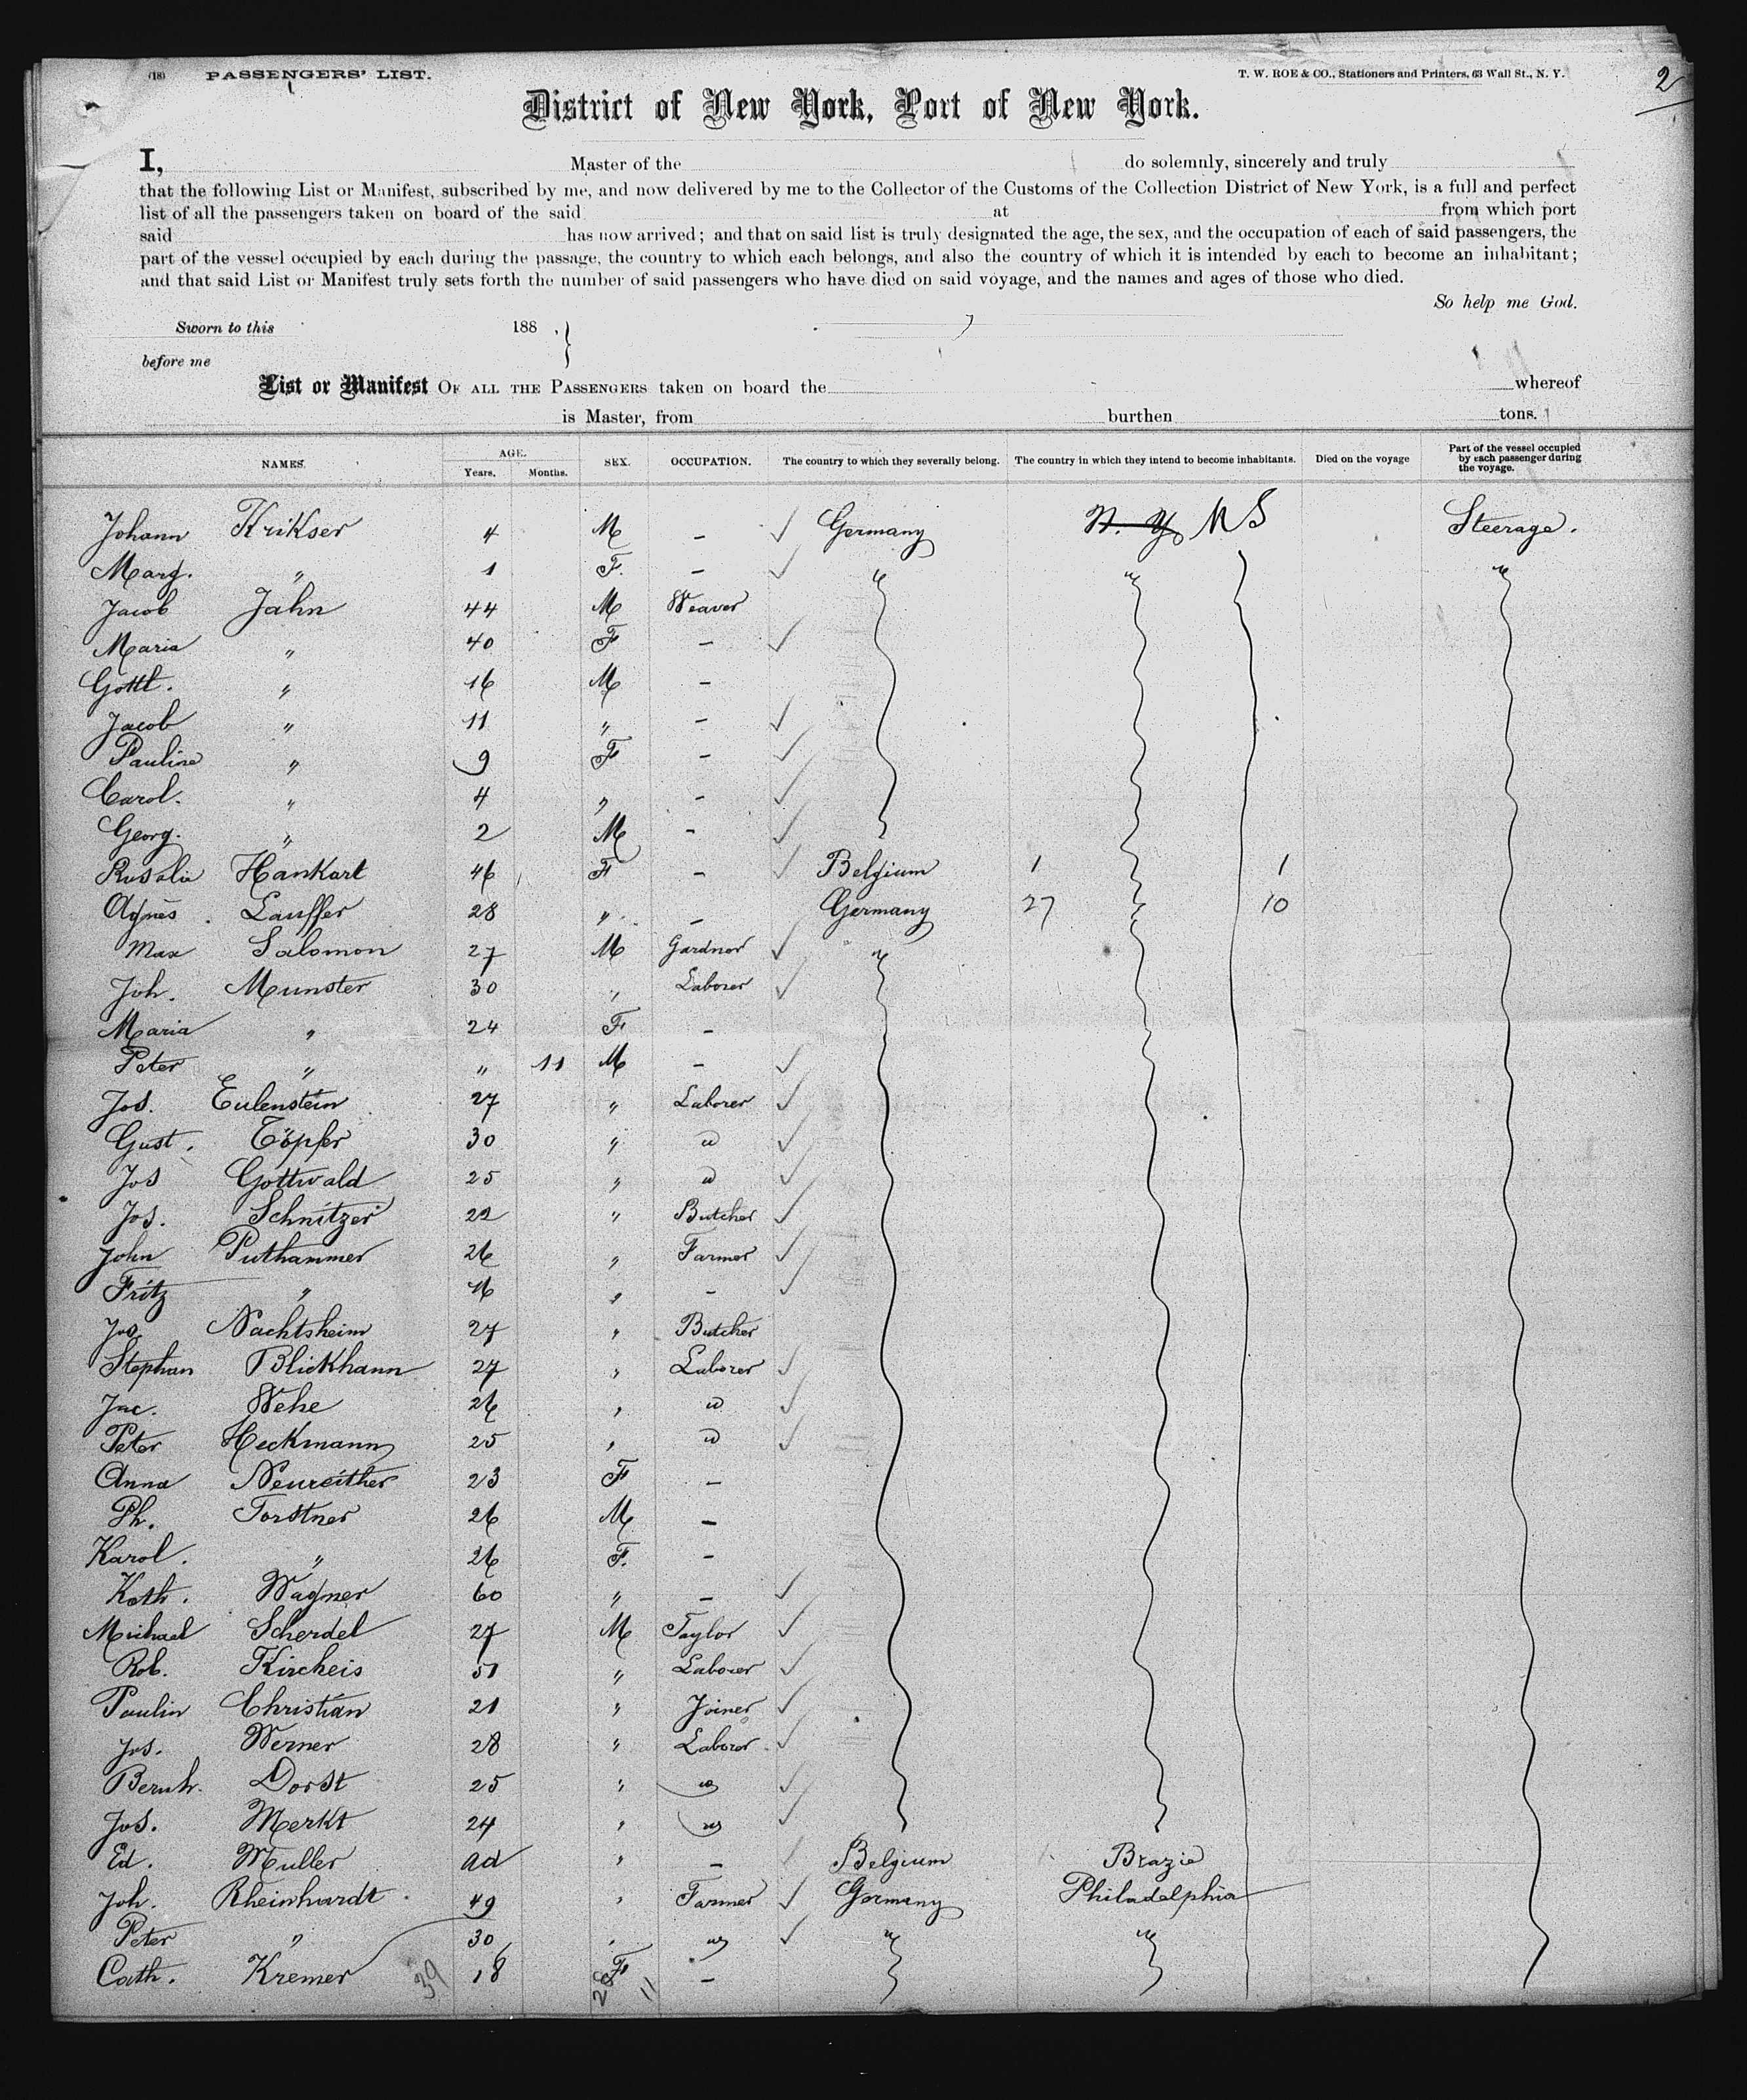 (18) PASSENGERS' LIST. T. W. ROE & CO., Stationers and Printers, 63 Wall St., N. Y. 2
District of New York, Port of New York.
I, Master of the do solemnly, sincerely and truly
that the following List or Manifest, subscribed by me, and now delivered by me to the Collector of the Customs of the Collection District of New York, is a full and perfect
list of all the passengers taken on board of the said at from which port
said has now arrived; and that on said list is truly designated the age, the sex, and the occupation of each of said passengers, the
part of the vessel occupied by each during the passage, the country to which each belongs, and also the country of which it is intended by each to become an inhabitant;
and that said List or Manifest truly sets forth the number of said passengers who have died on said voyage, and the names and ages of those who died.
So help me God.
Sworn to this 188 , }
before me
List or Manifest OF ALL THE PASSENGERS taken on board the whereof
is Master, from burthen tons.
NAMES. AGE. Years. Months. SEX. OCCUPATION. The country to which they severally belong. The country in which they intend to become inhabitants. Died on the voyage Part of the vessel occupied by each passenger during the voyage.
Johann Krikser 4 M – ✓ Germany N. Y. U S Steerage.
Marg. " 1 F. – ✓ " " "
Jacob Jahn 44 M Weaver
Maria " 40 F – ✓
Gottl. " 16 M –
Jacob " 11 " – ✓
Pauline " 9 F – ✓
Carol. " 4 " – ✓
Georg. " 2 M – ✓
Rosalie Hankart 46 F – ✓ Belgium 1 1
Agnes Lauffer 28 " – Germany 27 10
Max Salomon 27 M Gardner ✓ "
Joh. Munster 30 " Laborer ✓
Maria " 24 F –
Peter " " 11 M – ✓
Jos. Eulenstein 27 " Laborer ✓
Gust. Töpfer 30 " " ✓
Jos Gottwald 25 " " ✓
Jos. Schnitzer 22 " Butcher ✓
John Puthammer 26 " Farmer ✓
Fritz " 16 " – ✓
Jos. Nachtsheim 27 " Butcher
Stephan Blickhann 27 " Laborer ✓
Jac. Wehe 26 " " ✓
Peter Heckmann 25 " " ✓
Anna Neureither 23 F –
Ph. Forstner 26 M –
Karol. " 26 F. –
Kath. Wagner 60 " – ✓
Michael Scherdel 27 M Taylor ✓
Rob. Kircheis 51 " Laborer ✓
Paulin Christian 21 " Joiner ✓
Jos. Werner 28 " Laborer ✓
Bernh. Dorst 25 " " ✓
Jos. Merkt 24 " " ✓
Ed. Muller ad " – ✓ Belgium Brazie
Joh. Rheinhardt 49 " Farmer ✓ Germany Philadelphia
Peter " 30 " " ✓ " "
Cath. Kremer 18 F –
39 28 11